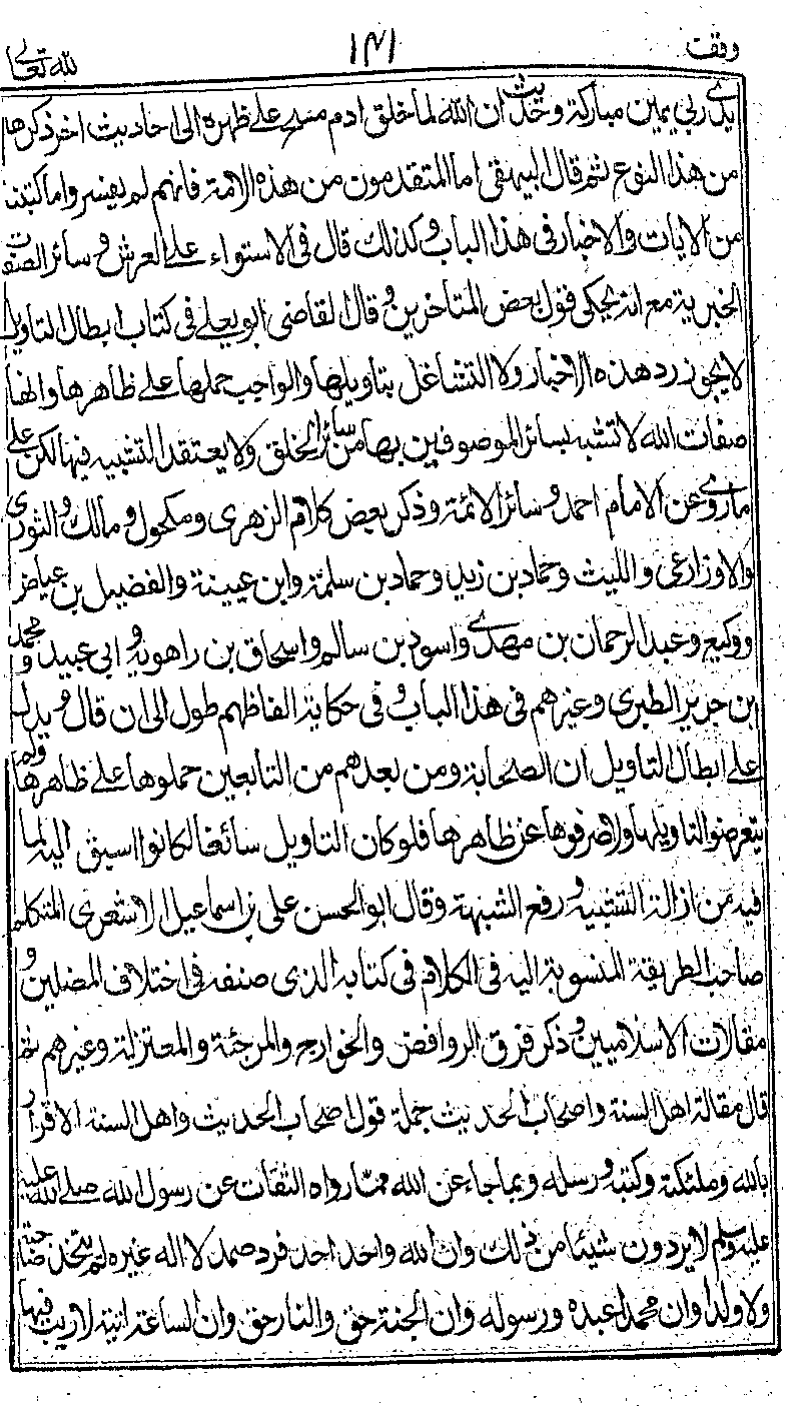 وقفت ١٣١ لله تعالى
يدي ربي يمين مباركة وحديث ان الله لما خلق ادم مسح على ظهره الى احاديث اخر ذكرها
من هذا النوع ثم قال البيهقي اما المتقدمون من هذه الامة فانهم لم يفسروا ما كتبنا
من الايات والاخبار في هذا الباب وكذلك قال في الاستواء على العرش وسائر الصفات
الخبرية مع انه يحكي قول بعض المتاخرين وقال القاضي ابو يعلى في كتاب ابطال التاويل
لا يجوز رد هذه الاخبار ولا التشاغل بتاويلها والواجب حملها على ظاهرها وانها
صفات الله لا تشبه بسائر الموصوفين بها من سائر الخلق ولا يعتقد التشبيه فيها لكن على
ما روي عن الامام احمد وسائر الائمة وذكر بعض كلام الزهري ومكحول ومالك والثوري
والاوزاعي والليث وحماد بن زيد وحماد بن سلمة وابن عيينة والفضيل بن عياض
ووكيع وعبد الرحمان بن مهدي واسود بن سالم واسحاق بن راهويه وابي عبيد ومحمد
ابن جرير الطبري وغيرهم في هذا الباب وفي حكاية الفاظهم طول الى ان قال ويدل
على ابطال التاويل ان الصحابة ومن بعدهم من التابعين حملوها على ظاهرها ولم
يتعرضوا لتاويلها ولا صرفوها عن ظاهرها فلو كان التاويل سائغا لكانوا اسبق اليه لما
فيه من ازالة التشبيه ورفع الشبهة وقال ابو الحسن علي بن اسماعيل الاشعري المتكلم
صاحب الطريقة المنسوبة اليه في الكلام في كتابه الذي صنفه في اختلاف المضلين و
مقالات الاسلاميين وذكر فرق الروافض والخوارج والمرجئة والمعتزلة وغيرهم ثم
قال مقالة اهل السنة واصحاب الحديث جملة قول اصحاب الحديث واهل السنة الاقرار
بالله وملئكته وكتبه ورسله وبما جاء عن الله مما رواه الثقات عن رسول الله صلى الله عليه
عليه وسلم لا يردون شيئا من ذلك وان الله واحد احد فرد صمد لا اله غيره لم يتخذ صاحبة
ولا ولدا وان محمدا عبده ورسوله وان الجنة حق والنار حق وان الساعة اتية لا ريب فيها